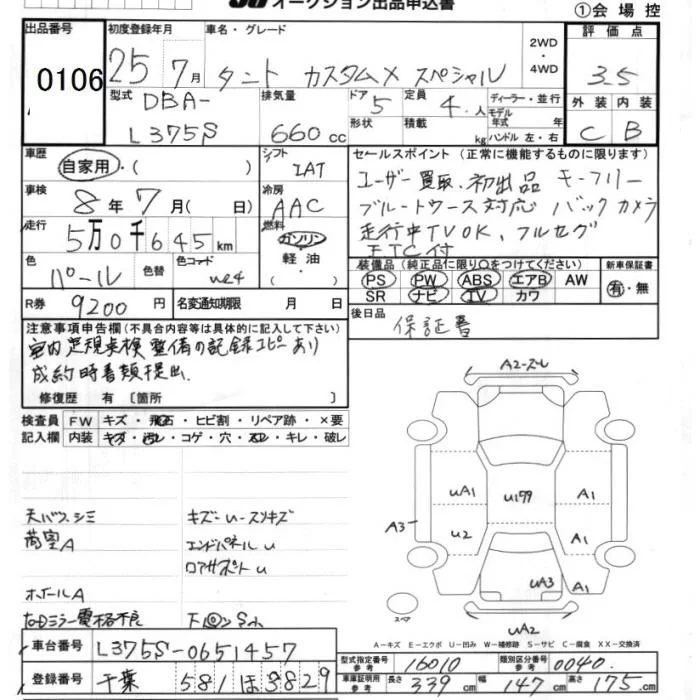 オークション出品申込書
①会場控
出品番号
0106
初度登録年月
25 7月
車名・グレード
タント カスタムX スペシャル
2WD
・
4WD
評価点
3.5
型式
DBA-
L375S
排気量
660cc
ドア
5
定員
4.人
ディーラー・並行
モデル年式 年式
形状
積載 kg
ハンドル 左・右
外装
内装
C
B
車歴
自家用・( )
シフト
IAT
車検
8年7月( 日)
冷房
AAC
走行
5万0千645km
燃料
ガソリン
軽油
・( )
色
パール
色替
色コード
W24
R券
9200円
名変通知期限 月 日
セールスポイント(正常に機能するものに限ります)
ユーザー買取.初出品 キーフリー
ブルートゥース対応 バックカメラ
走行中TVOK、フルセグ
ETC付
装備品(純正品に限り○をつけてください)
PS PW ABS エアB AW
SR ナビ TV カワ
新車保証書
有・無
後日品
保証書
注意事項申告欄(不具合内容等は具体的に記入して下さい)
室内足規車検整備の記録コピーあり
成約時書類提出.
修復歴 有〔箇所 〕
検査員
記入欄
FW キズ・飛石・ヒビ割・リペア跡・×要
内装 キズ・汚レ・コゲ・穴・スレ・キレ・破レ
天バリ シミ
荷室A
キズーuースリキズ
エンドパネルu
ロアサポートu
ホイールA
右ドアミラー電格不良
下回りSホ
A2-ズレ
A3
UA1
U2
U179
A1
A1
A1
UA3
UA2
スペア
A-キズ E-エクボ U-凹み W-補修跡 S-サビ C-腐食 XX-交換済
車台番号
L375S-0651457
登録番号
千葉 581 ほ3829
型式指定番号
参考
16010
類別区分番号
参考
0040
車庫証明用
参考
長さ 339cm
幅 147cm
高さ 175cm